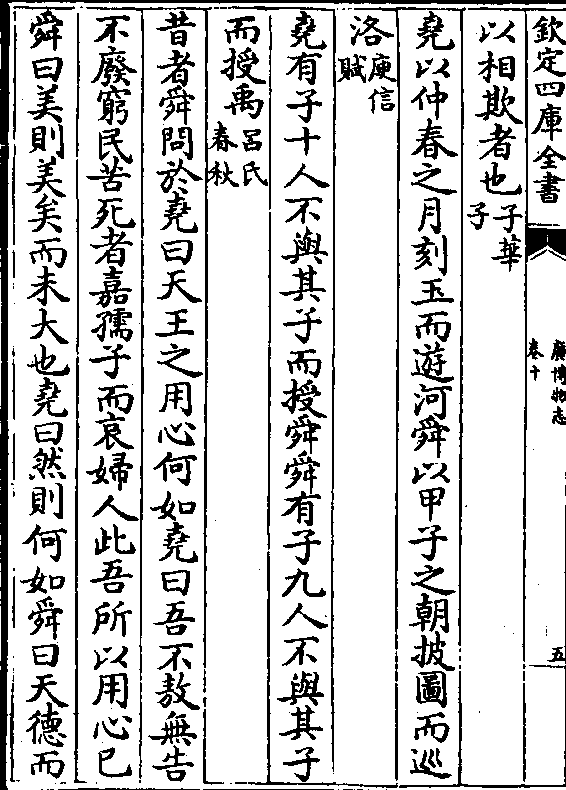 欽定四庫全書
廣博物志
卷十
五
以相欺者也子華
子
堯以仲春之月刻玉而遊河舜以甲子之朝披圖而巡
洛庾信
賦
堯有子十人不與其子而授舜舜有子九人不與其子
而授禹呂氏
春秋
昔者舜問於堯曰天王之用心何如堯曰吾不敖無告
不廢窮民苦死者嘉孺子而哀婦人此吾所以用心已
舜曰美則美矣而未大也堯曰然則何如舜曰天德而